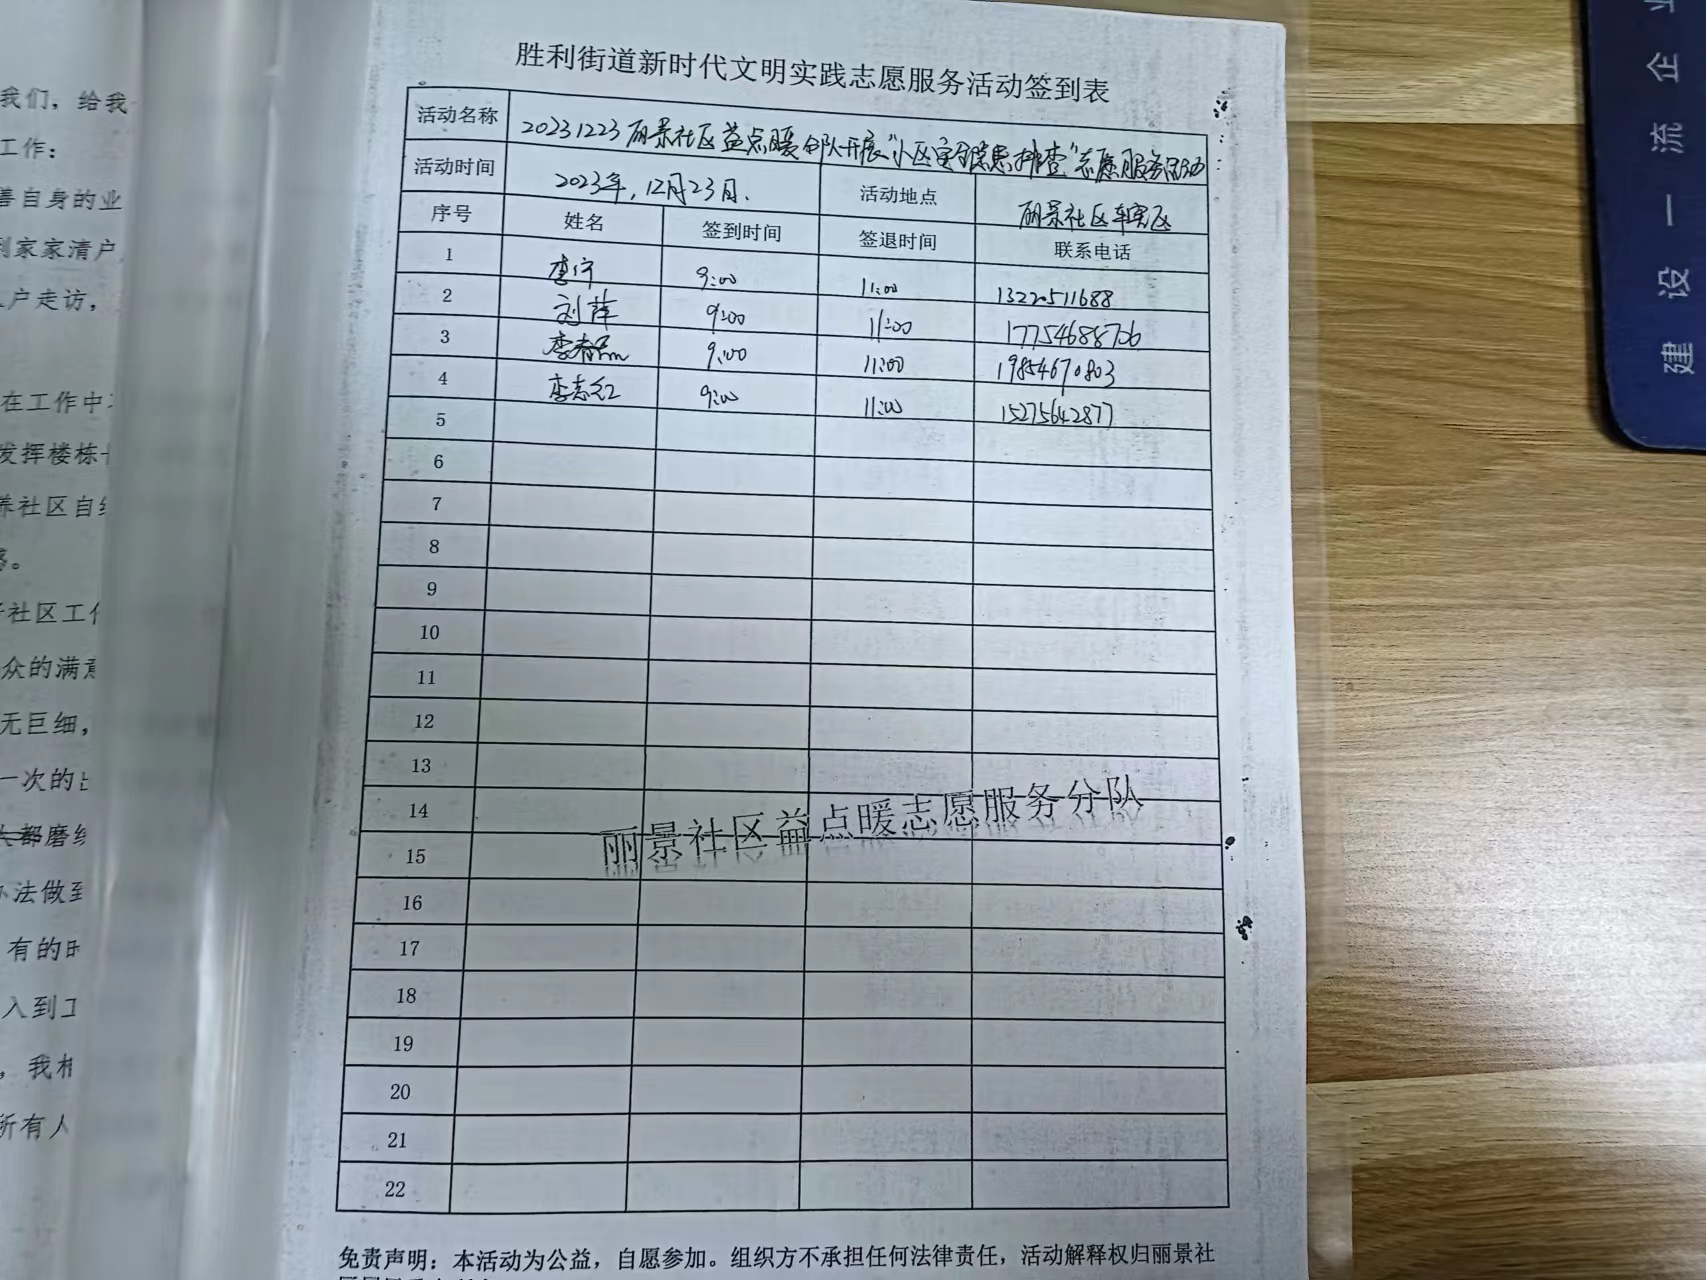 胜利街道新时代文明实践志愿服务活动签到表
活动名称 20231223丽景社区益点暖分队开展"小区安全隐患排查"志愿服务活动
活动时间 2023年,12月23日. 活动地点 丽景社区辖区
序号 姓名 签到时间 签退时间 联系电话
1 李宁 9:00 11:00 13220511688
2 刘萍 9:00 11:00 17754688706
3 李春 9:00 11:00 19854670803
4 李志红 9:00 11:00 15275642877
5
6
7
8
9
10
11
12
13
14
15
丽景社区益点暖志愿服务分队
16
17
18
19
20
21
22
免责声明：本活动为公益，自愿参加。组织方不承担任何法律责任，活动解释权归丽景社
我们，给我
工作：
善自身的业
利家家清户
户走访，
在工作中
发挥楼栋
养社区自
社区工作
众的满意
无巨细，
一次的
都磨
法做到
有的时
入到工
，我相
所有人
建设一流企业